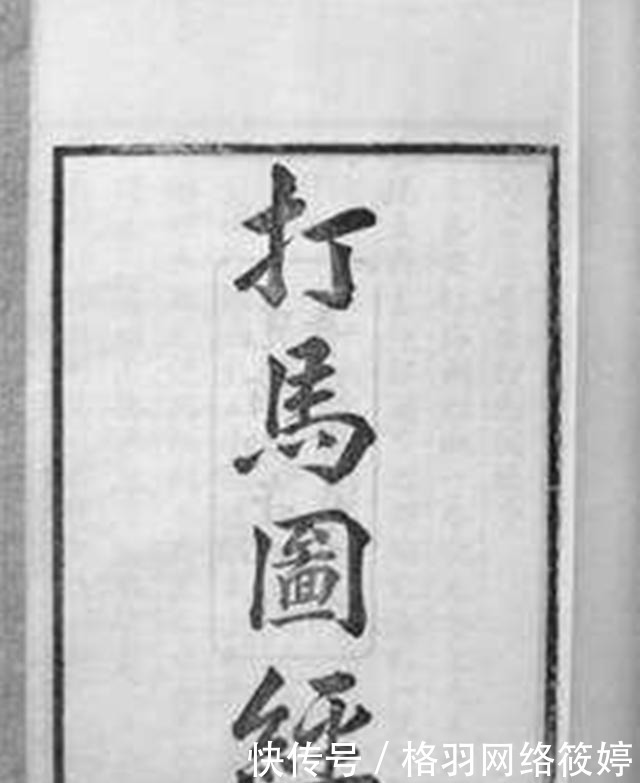 打馬圖經
快传号/格羽网络筱婷